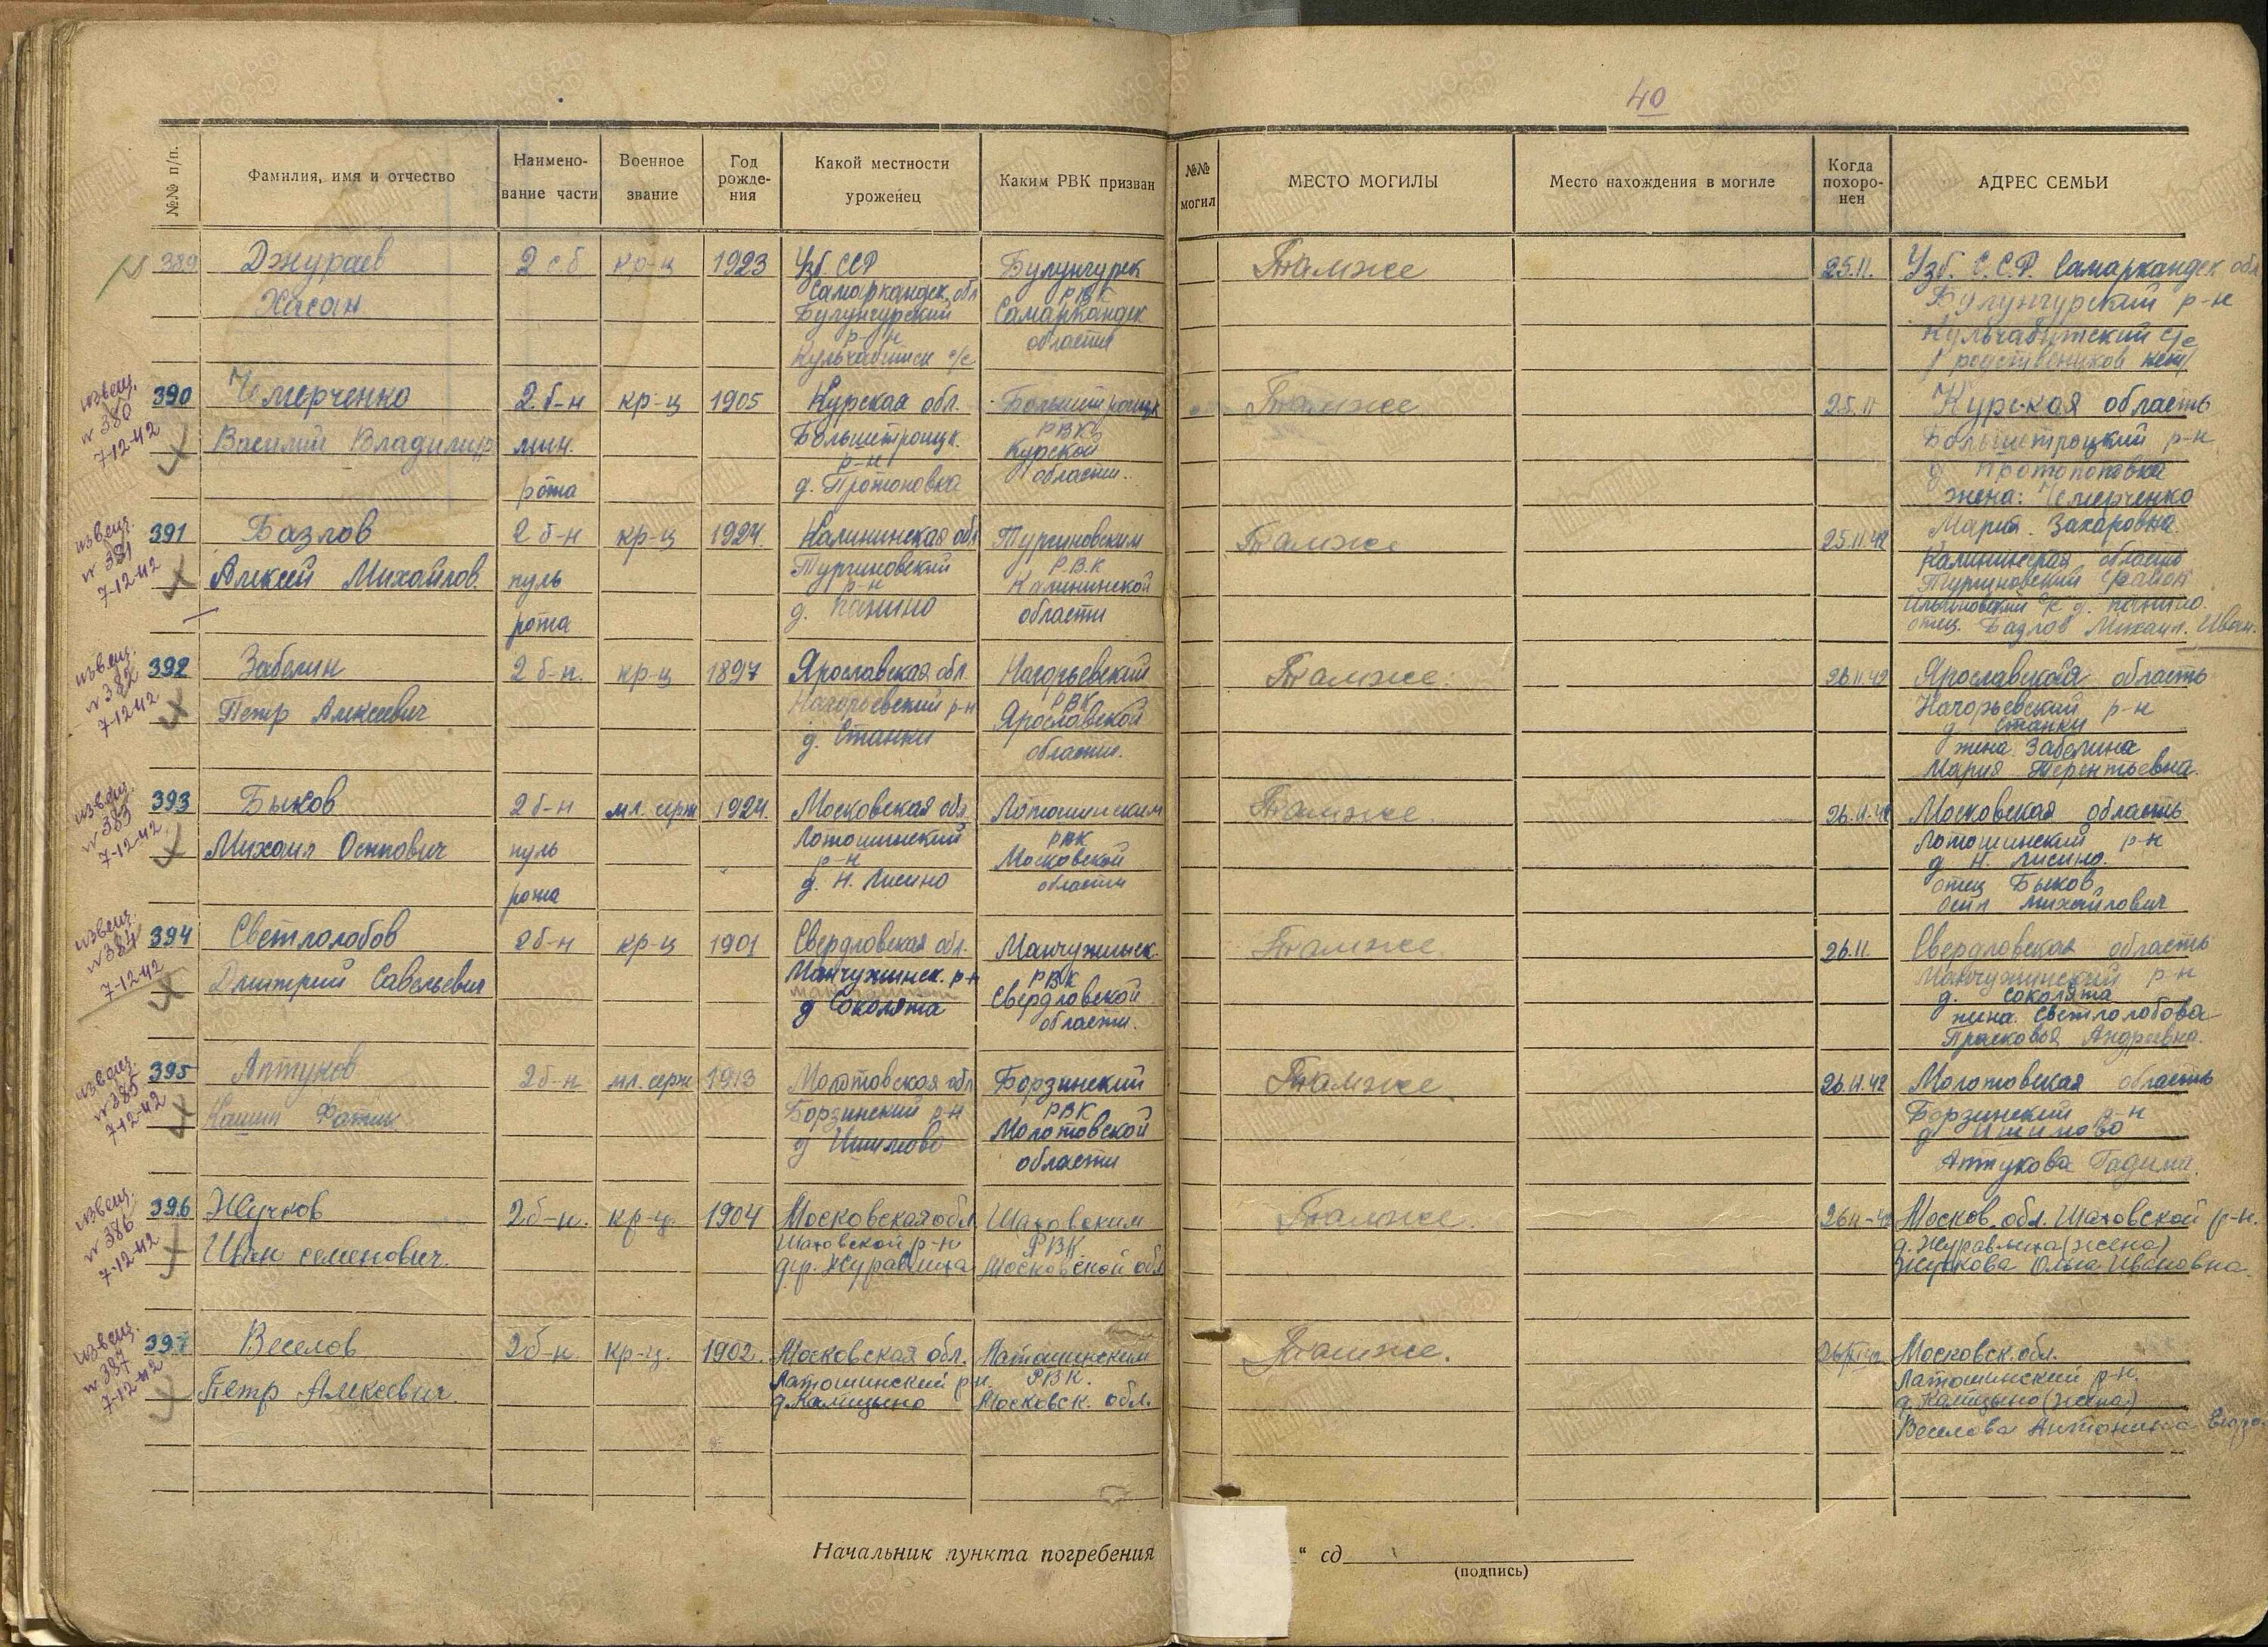 40
№№ п/п.
Фамилия, имя и отчество
Наимено-
вание части
Военное
звание
Год
рожде-
ния
Какой местности
уроженец
Каким РВК призван
№№
могил
МЕСТО МОГИЛЫ
Место нахождения в могиле
Когда
похоро-
нен
АДРЕС СЕМЬИ
389 Джураев 2 с.б кр-ц 1923 Узб. ССР Булунгурск Тамже 25.11. Узб. С.С.Р. Самаркандск обл
Хасан Самаркандск. обл РВК Булунгурский р-н
Булунгурский Самаркандск
р-н области
извещ.
№ 380
7-12-42
390 Чемерченко 2 б-н кр-ц 1905 Курская обл. Тамже 25.11 Курская область
Василий Владимир мин. Большетроицк. РВК Большетроцкий р-н
р-н Курской д. Протопоповка
рота д. Протоповка области. жена: Чемерченко
Мария Захаровна
извещ.
№ 381
7-12-42
391 Базлов 2 б-н кр-ц 1924. Калининская обл Тургиновским Тамже 25.11.42 Калининская область
Алексей Михайлов. пуль Тургиновский РВК Тургиновский район
р-н Калининской д. Панино.
рота д. Панино области отец. Базлов Михаил. Иван.
извещ.
№ 382
7-12-42
392 Забелин 2 б-н. кр-ц 1897 Ярославская обл. Нагорьевский Тамже. 26.11.42 Ярославская область
Петр Алексеевич Нагорьевский р-н РВК Нагорьевский р-н
д. Станки Ярославской д Станки
области. жена Забелина
Мария Терентьевна.
извещ.
№ 383
7-12-42
393 Быков 2 б-н мл. серж 1924. Московская обл. Лотошинским Тамже. 26.11.42 Московская область
Михаил Осипович пуль Лотошинский РВК Лотошинский р-н
р-н Московской д Н. Лисино.
рота д. Н. Лисино области отец Быков
Осип Михайлович
извещ.
№ 384
7-12-42
394 Светлолобов 2б-н кр-ц 1901 Свердловская обл. Манчужинск. Тамже. 26.11. Свердловская область
Дмитрий Савельевич Манчужинск. р-н РВК Манчужинский р-н
д Соколята Свердловской д. Соколята
области. жена. Светлолобова
Прасковья Андреевна.
извещ.
№ 385
7-12-42
395 Аптуков 2б-н мл. серж 1913 Молотовская обл Борзинский Тамже. 26.11.42 Молотовская область
Борзинский р-н РВК Борзинский р-н
д Ишимово Молотовской д Ишимово
области Аптукова
извещ.
№ 386
7-12-42
396 Жучков 2б-н. кр-ц. 1904 Московская обл Шаховским Тамже. 26.11-42 Москов. обл. Шаховской р-н.
Иван Семенович. Шаховской р-н РВК (жена)
дер. Московской обл Жучкова Ольга Ивановна.
извещ.
№ 387
7-12-42
397 Веселов 2б-н. кр-ц. 1902. Московская обл. Латошинским Тамже. Московск. обл.
Петр Алексеевич. Латошинский р-н. РВК. Латошинский р-н.
Московск. обл. (жена)
Веселова Антонина
Начальник пункта погребения
“ сд
(подпись)